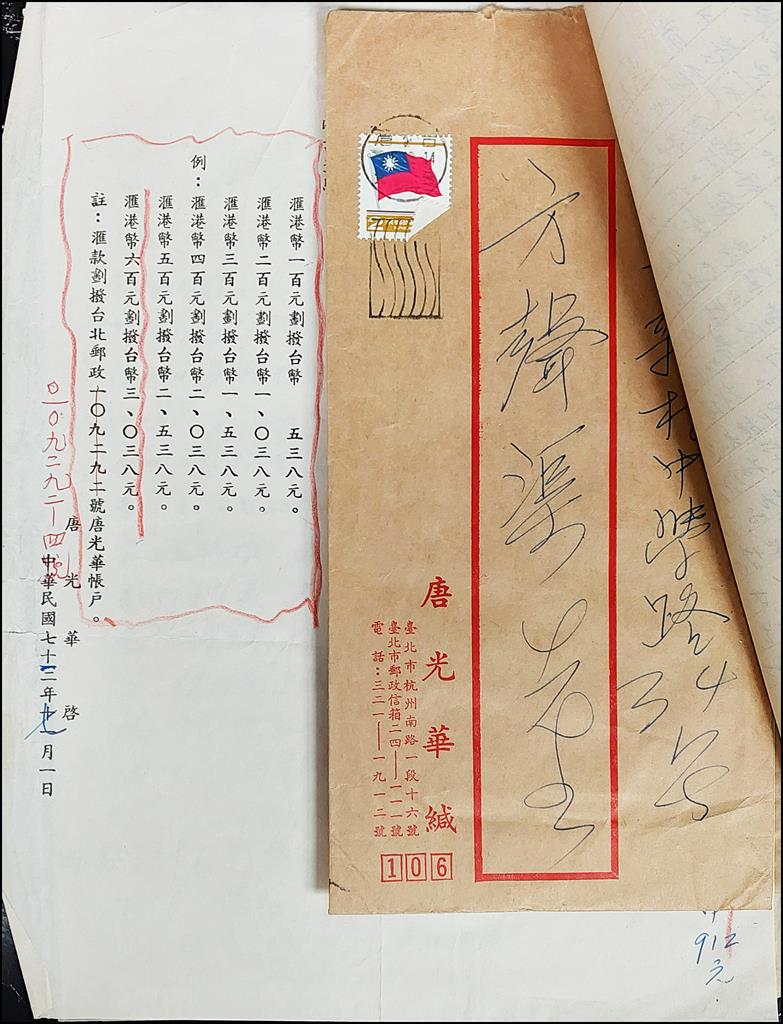 村中 路34号
方聲渠先生
唐光華緘
臺北市杭州南路一段十六號
臺北市郵政信箱二四—一一一號
電話：三二一—一九一二號
106
912元
滙港幣一百元劃撥台幣 五三八元。
滙港幣二百元劃撥台幣一、〇三八元。
滙港幣三百元劃撥台幣一、五三八元。
例：滙港幣四百元劃撥台幣二、〇三八元。
滙港幣五百元劃撥台幣二、五三八元。
滙港幣六百元劃撥台幣三、〇三八元。
註：滙款劃撥台北郵政一〇九二九二號唐光華帳戶。
唐光華 啓
〇一〇九二九二—四號
中華民國七十二年 月一日